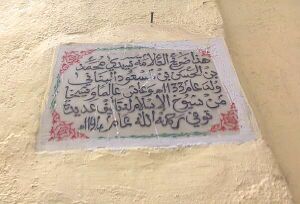 I
هذا ضريح العلامة سيدي محمد
بن الحسين بن مسعود البناني
ولد عام 1133هـ وعاش عالما وفقيها
من شيوخ الإسلام
توفي رحمه الله عام 1194هـ